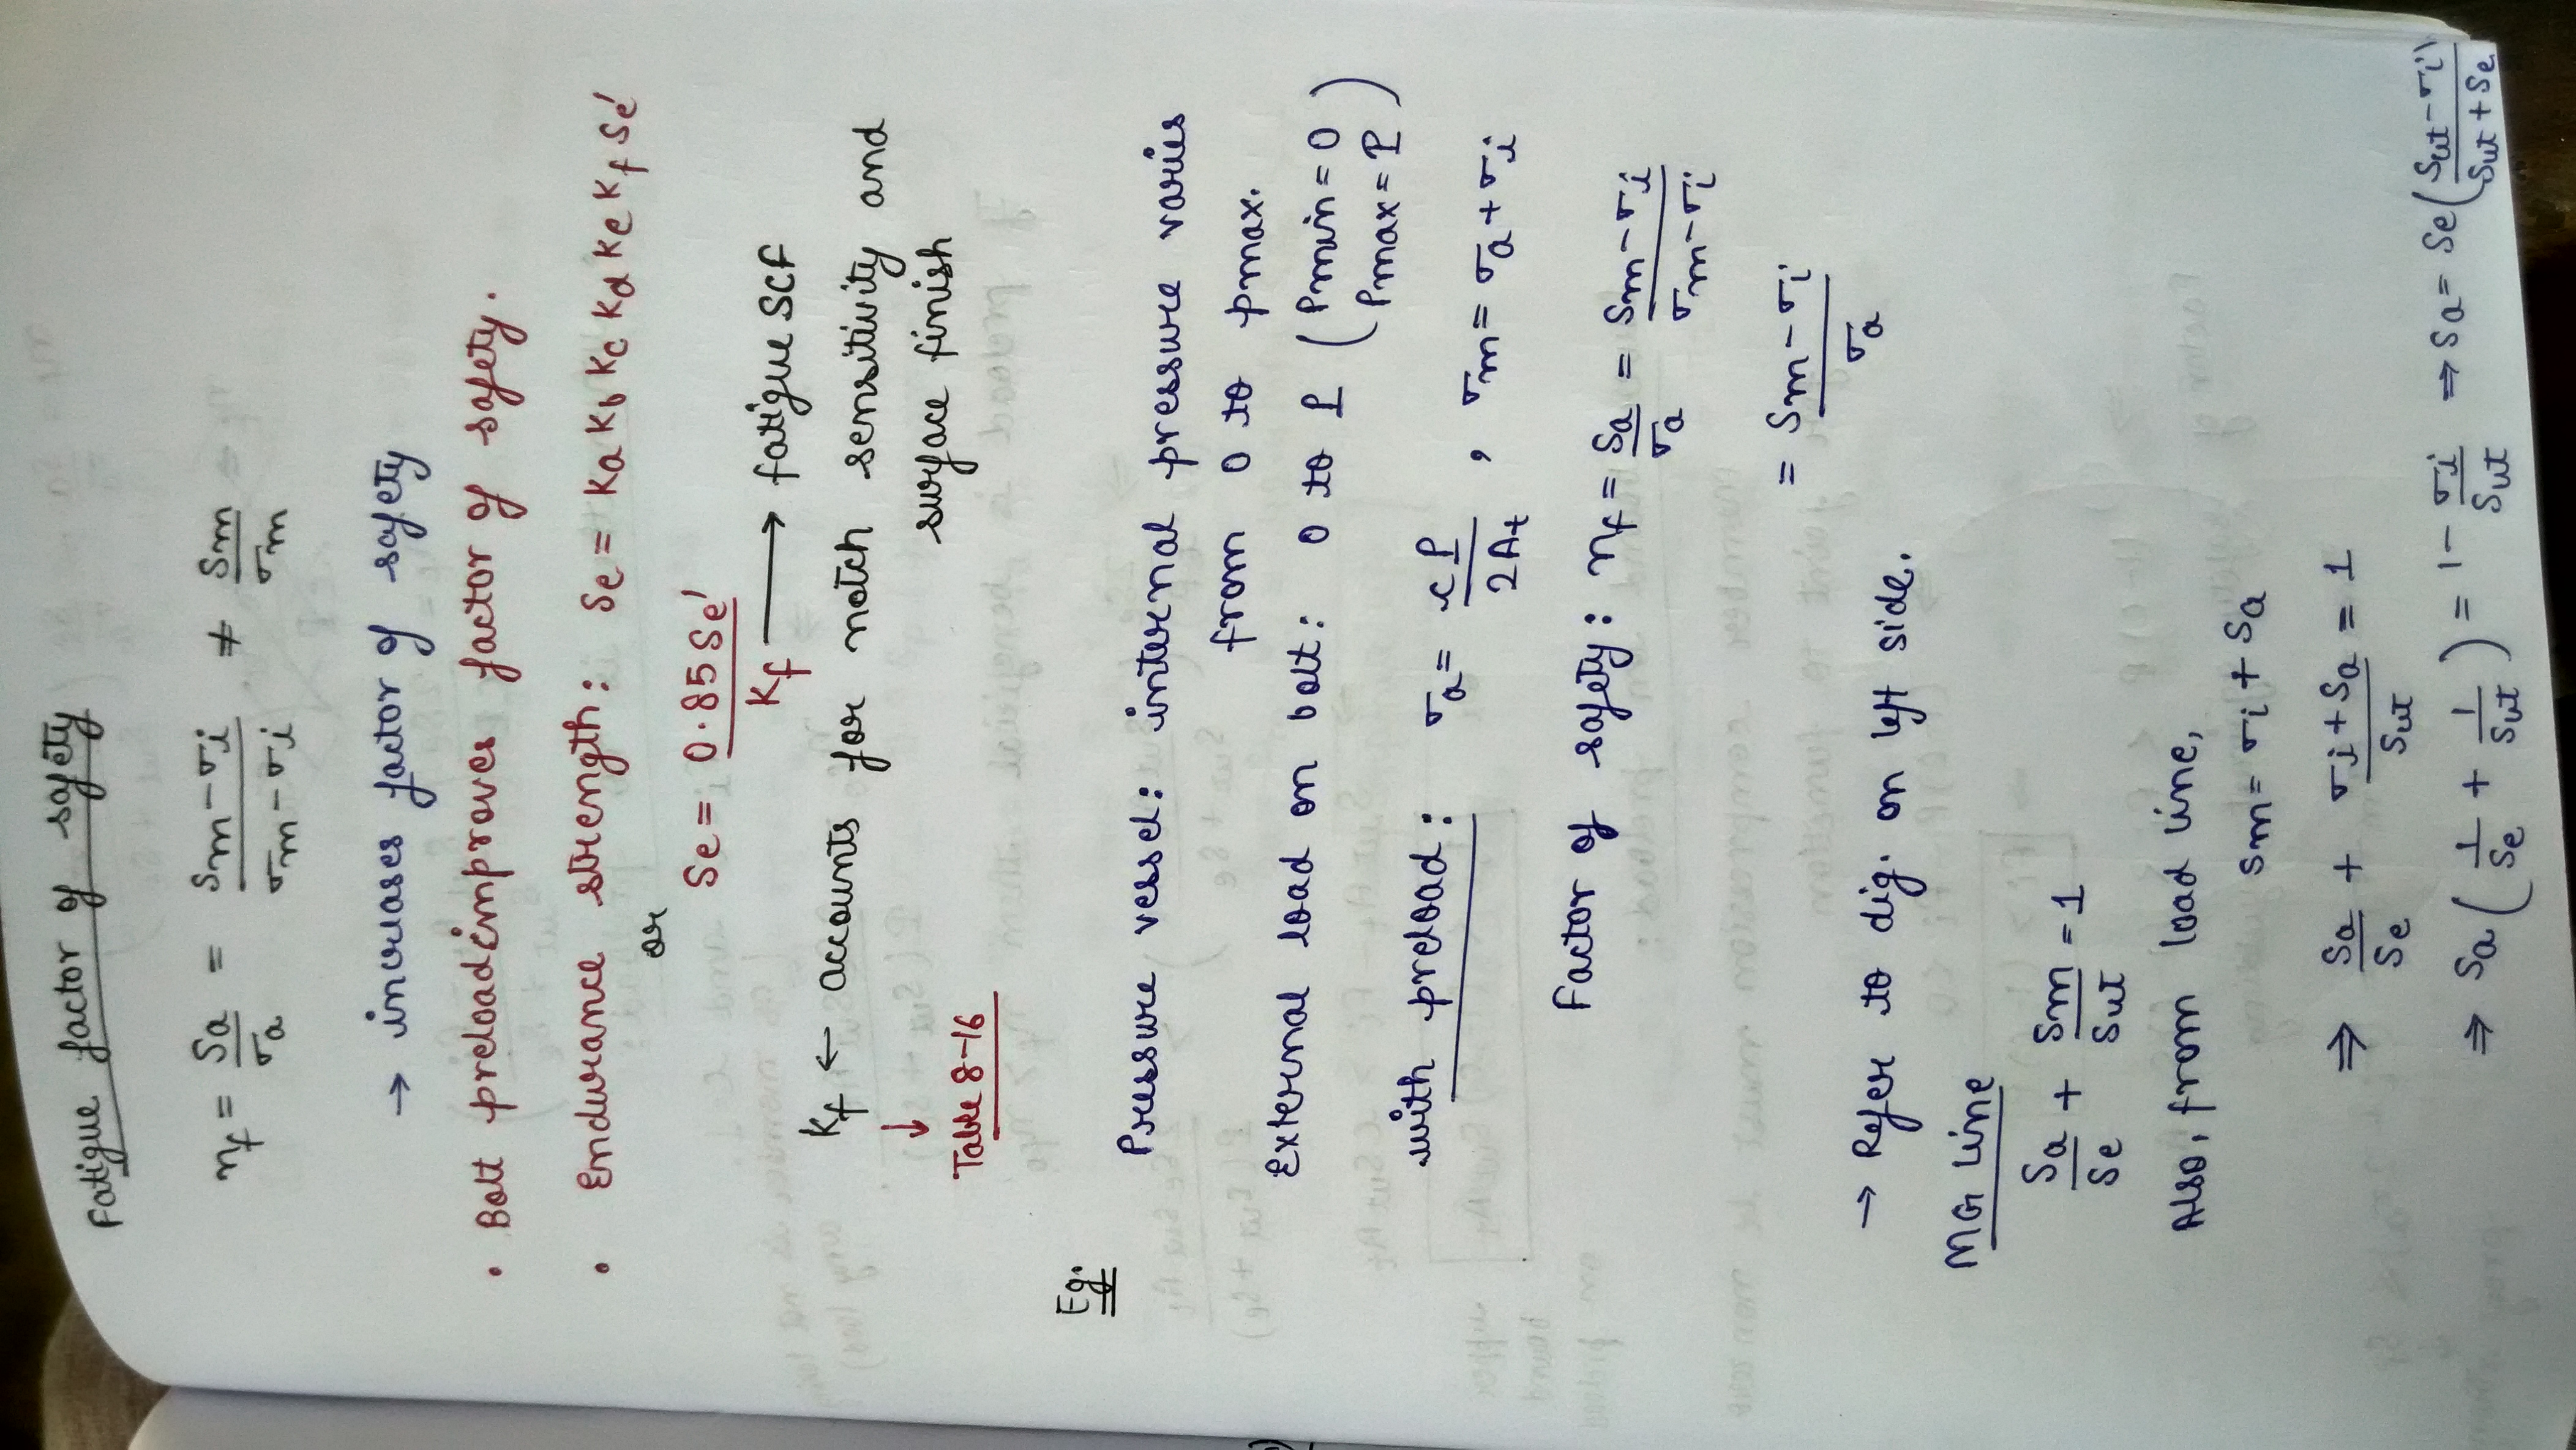 Fatigue factor of safety
nf = Sa/σa = (Sm-σi)/(σm-σi) ≠ Sm/σm
→ increases factor of safety
• Bolt preload improves factor of safety.
• Endurance strength: Se = Ka Kb Kc Kd Ke Kf Se'
or
Se = 0.85 Se'/Kf → fatigue SCF
Kf ← accounts for notch sensitivity and
surface finish
↓
Table 8-16
Eg.
Pressure vessel: internal pressure varies
from 0 to pmax.
External load on bolt: 0 to P (Pmin = 0
Pmax = P)
with preload: σa = cP/2At , σm = σa + σi
Factor of safety: nf = Sa/σa = (Sm-σi)/(σm-σi)
= (Sm-σi)/σa
→ Refer to dig. on left side.
MG Line
Sa/Se + Sm/Sut = 1
Also, from load line,
Sm = σi + Sa
⇒ Sa/Se + (σi+Sa)/Sut = 1
⇒ Sa(1/Se + 1/Sut) = 1 - σi/Sut ⇒ Sa = Se((Sut-σi)/(Sut+Se